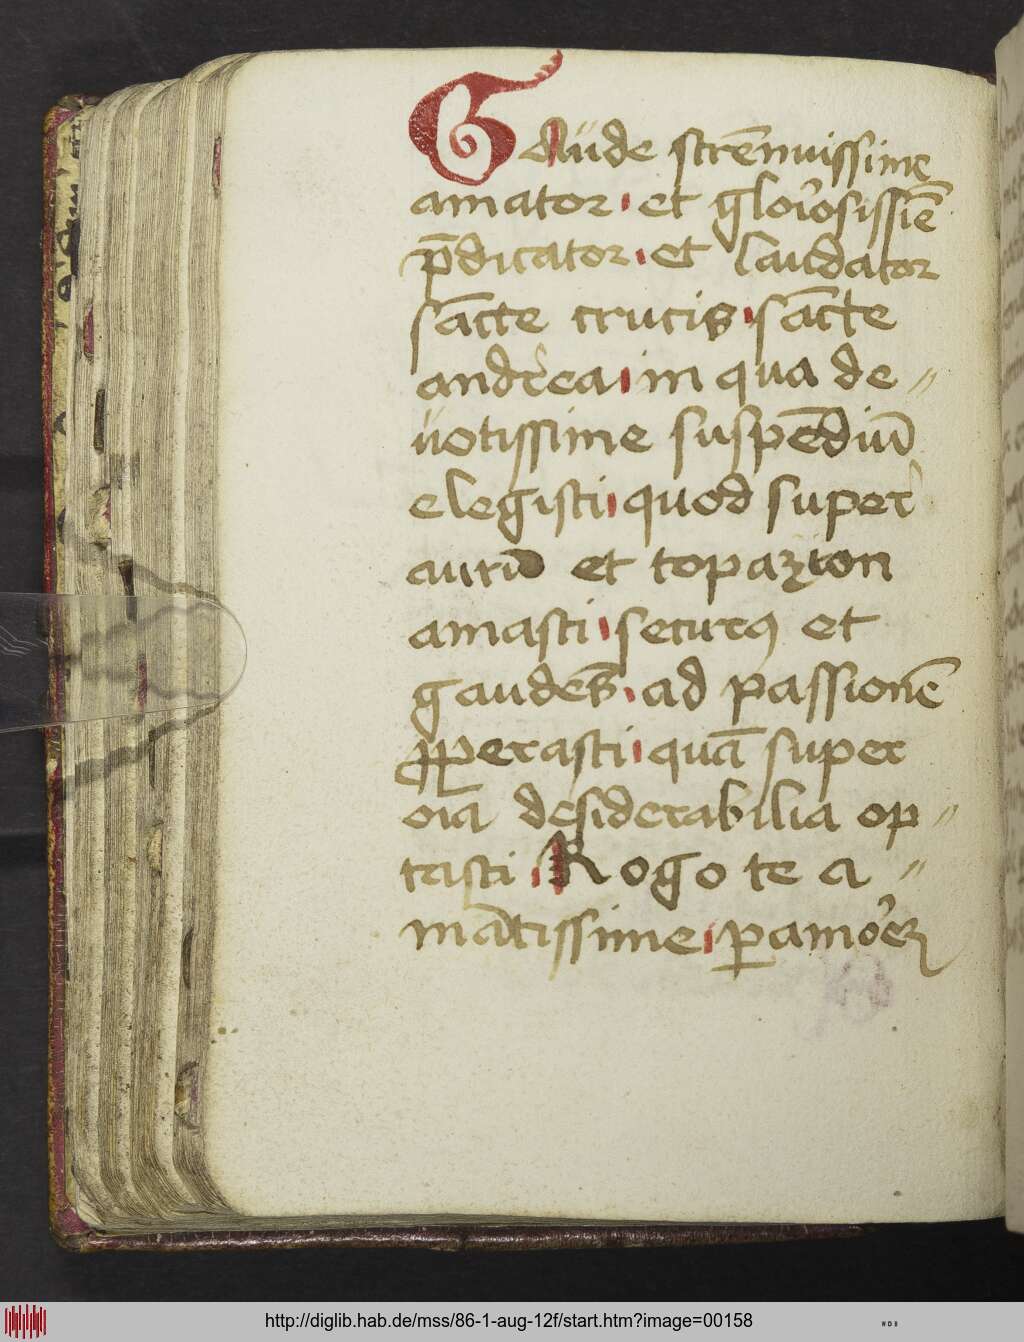 Gaude strēnuissime
amator · et glorͥosissīē
p̄dicator · et laudator
sācte crucis · sācte
andrͤea · in qua de〃
uotissime suspēdiū
elegisti · quod super
aurū et topazion
amasti · securꝰ et
gaudēs · ad passionē
ꝓperasti · quā super
oīa desiderabilia op〃
tasti · Rogo te a〃
mātissime · ꝑ amorē
http://diglib.hab.de/mss/86-1-aug-12f/start.htm?image=00158